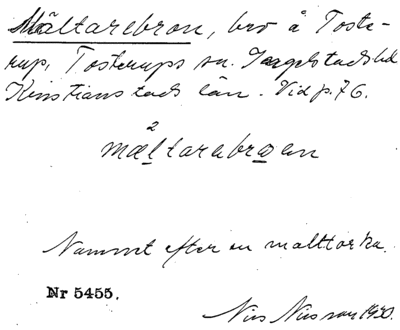 Mältarebron, bro å Toste-
rup, Tosterups sn. Ingelstads hd
Kristianstads län. Vid p. 76.
2
mæltarebroen
Namnet efter en malttorka.
Nr 5455.
Nils Nilsson 1930.